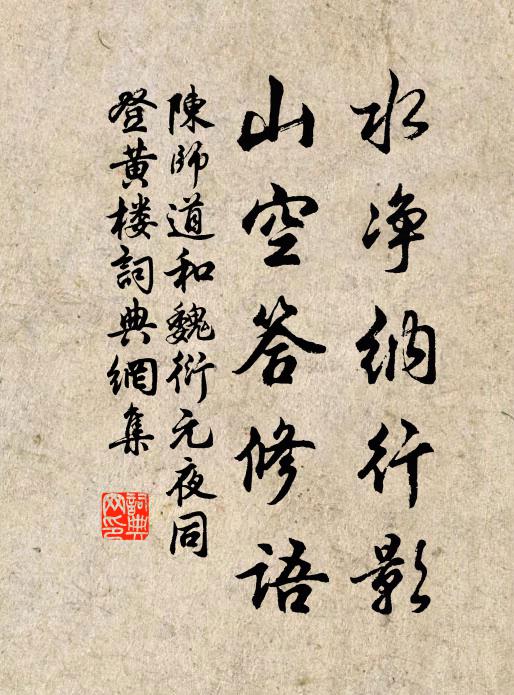 水净纳行影
山空答修語
陳師道和魏衍元夜同
登黄楼詞典網集
詞典
网印